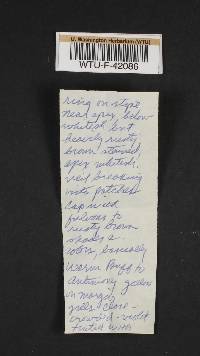 U. Washington Herbarium (WTU)
WTU-F-42086
ring on stipe
near apex, below
whitish but
heavily rusty
brown stained,
apex whitish.
veil breaking
into patches
Cap viscid
fulvous to
rusty brown
shades &
colors, basically
warm Buff to
Antimony yellow
on margin
gills close -
crowded - violet
tinted when